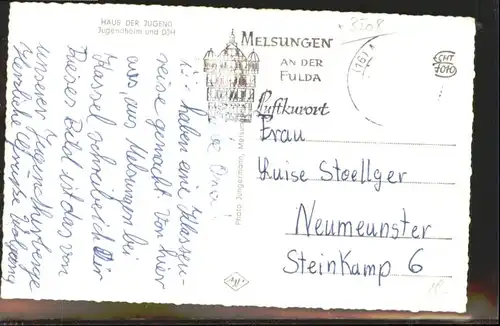 HAUS DER JUGEND
Jugendheim und DJH
Oma!
Wir haben eine Klassen-
reise gemacht. Von hier
aus, aus Melsungen bei
Kassel schreibe ich Dir
Dieses Bild ist das von
unserer Jugendherberge
Herzliche Grüße Wolfgang
Photo Jungermann, Melsungen
MELSUNGEN
AN DER
FULDA
Luftkurort
Frau
Luise Stoellger
Neumeunster
Steinkamp 6